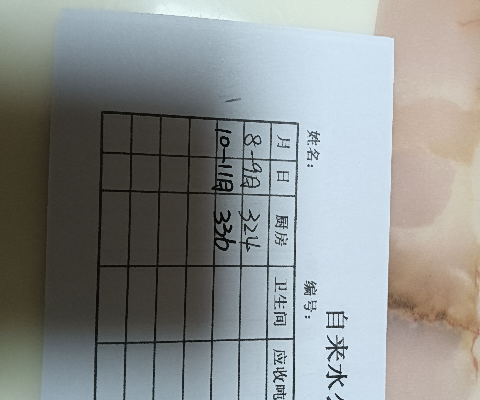 自来水
姓名: 编号:
月 日 厨房 卫生间 应收吨
8-9月 324
10-11月 336